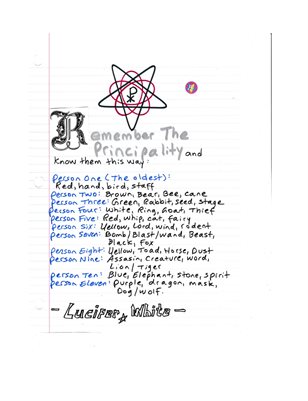 Remember The
Principality and
Know them this way:
Person One (The oldest):
Red, hand, bird, staff
Person Two: Brown, Bear, Bee, cane
Person Three: Green, Rabbit, seed, stage
Person Four: White, Ring, Goat, Thief
Person Five: Red, whip, cat, fairy
Person Six: Yellow, Lord, wind, rodent
Person Seven: Bomb/Blast/wand, Beast,
Black, Fox
Person Eight: Yellow, Toad, Horse, Dust
Person Nine: Assasin, Creature, word,
Lion/Tiger
Person Ten: Blue, Elephant, stone, spirit
Person Eleven: Purple, dragon, mask,
Dog/Wolf.
- Lucifer White -